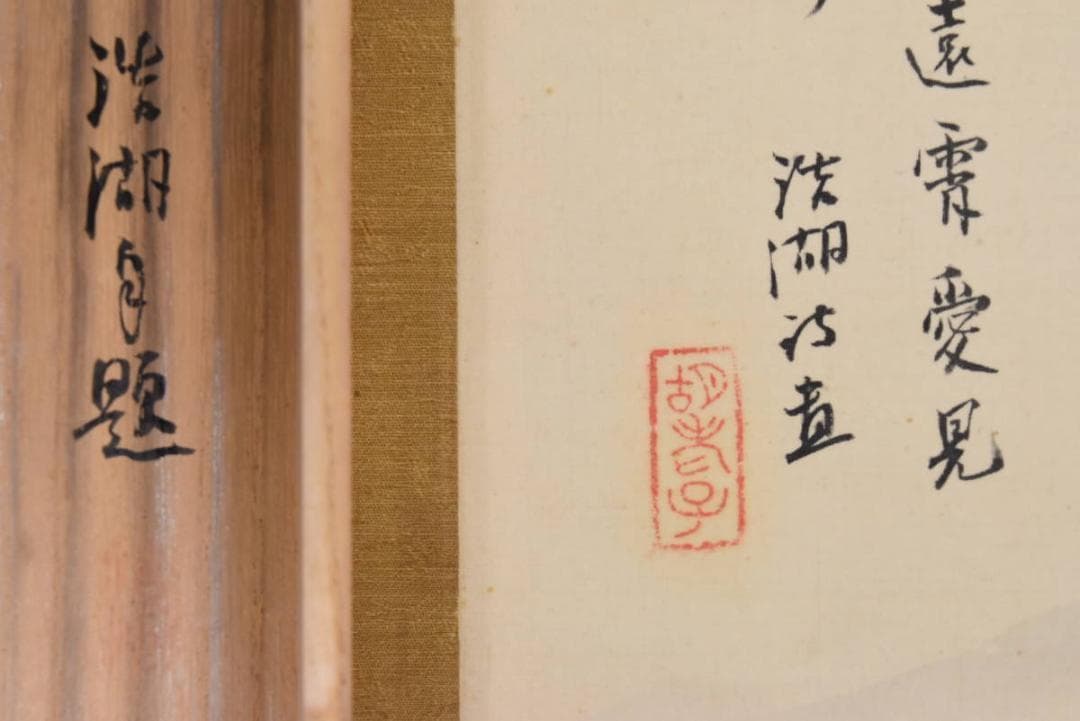 遠霄愛見
浩湖詩畫
浩湖自題